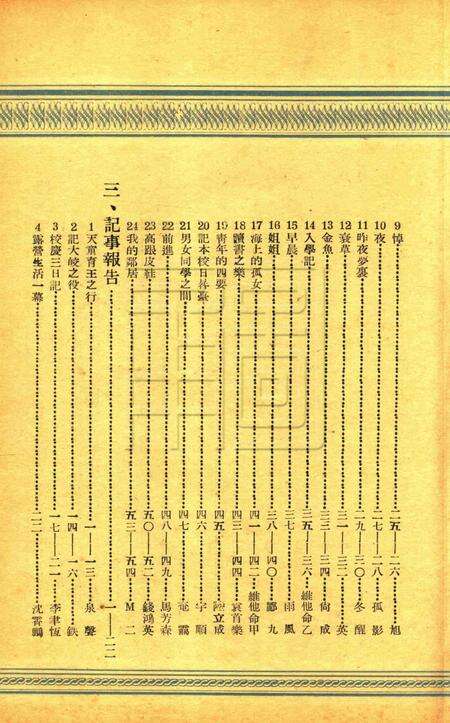 9 悼 二五——二六 旭
10 夜 二七——二八 孤影
11 昨夜夢裏 二九——三〇 冬醒
12 衰草 三一——三二 英
13 金魚 三三——三四 尙成
14 入學記 三五——三六 維他命乙
15 早晨 三七 雨風
16 姐姐 三八——四〇 鄭九
17 海上的孤女 四一——四二 維他命甲
18 讀書之樂 四三——四四 袁首樂
19 靑年的四要 四五 立成
20 記本校日 四六 宇順
21 男女同學之間 四七 靄
22 前進！ 四八——四九 馬芳森
23 高跟皮鞋 五〇——五二 錢鴻英
24 我的鄰居 五三——五四 M 二
三、記事報吿 一——二二
1 天童育王之行 一——一三 泉聲
2 記大皎之役 一四——一六 鉄
3 校慶三日記 一七——二一 李聿恆
4 露營生活一幕 二二 沈霄鵾